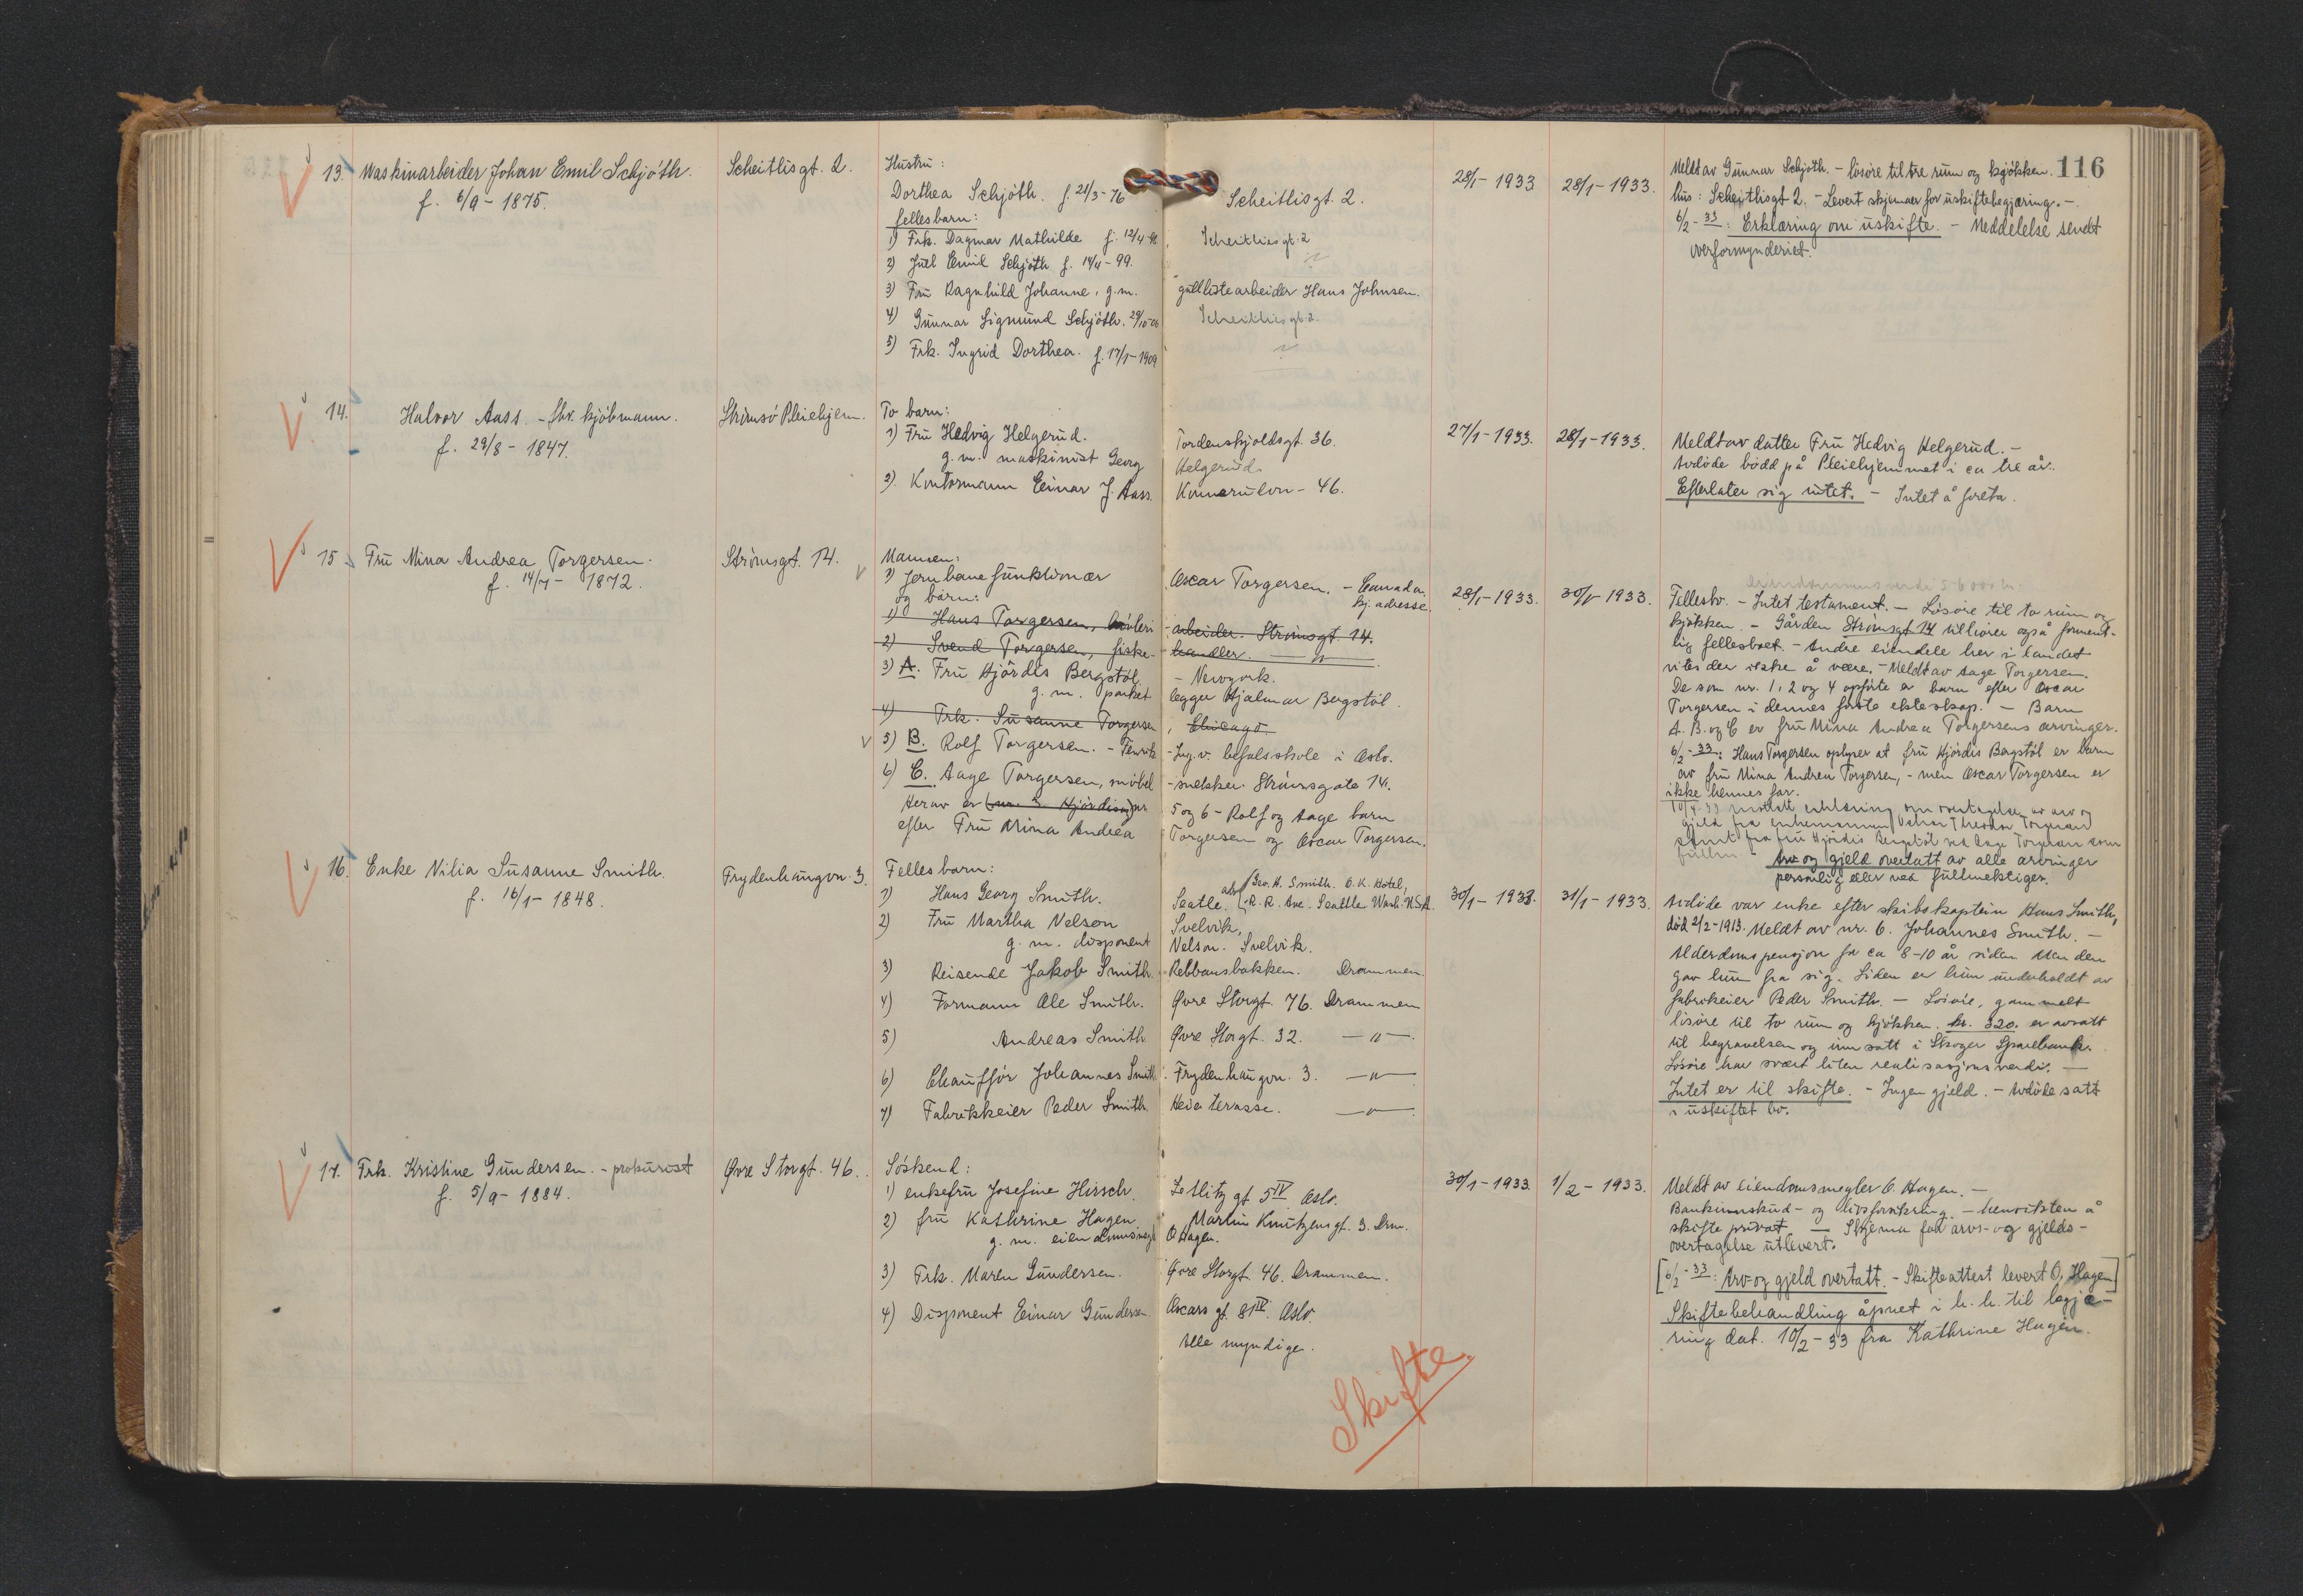 116
13. Maskinarbeider Johan Emil Schjöth.
f. 6/9 - 1875.
Scheitlisgt. 2.
Hustru:
Dorthea Schjöth. f. 21/3 - 76
Scheitlisgt. 2.
fellesbarn:
1) Frk. Dagmar Mathilde f. 12/4
Scheitliesgt. 2
2) Juel Emil Schjöth f. 14/4 - 99.
"
3) Fru Ragnhild Johanne, g.m.
gullistearbeider Hans Johnsen.
4) Gunnar Sigmund Schjöth. 29/10-06
Scheitliesgt. 2.
5) Frk. Ingrid Dorthea. f. 17/1 - 1909
"
28/1 - 1933
28/1 - 1933.
Meldt av Gunnar Schjöth. - lösöre til tre rum og kjökken.
hus: Scheitlisgt 2. - Levert skjemaer for uskiftebegjæring. -
6/2 - 33: Erklæring om uskifte. - Meddelelse sendt
overformynderiet.
14. Halvor Aass. - fhv. kjöbmann.
f. 29/8 - 1847.
Strömsö Pleiehjem.
To barn:
1) Fru Hedvig Helgerud.
Tordenskjoldsgt. 36.
g.m. maskinist Georg
Helgerud.
2). Kontormann Einar J. Aass.
Konnerudvn - 46.
27/1 - 1933.
28/1 - 1933.
Meldt av datter Fru Hedvig Helgerud. -
Avdöde bodd på Pleiehjemmet i ca tre år.
Efterlater sig intet. - Intet å foreta.
15. Fru Mina Andrea Torgersen.
f. 14/7 - 1872.
Strömsgt. 14.
Mannen:
1) Jernbanefunktionær
Oscar Torgersen. - Canada.
og barn:
kj. adresse.
1) Hans Torgersen,
arbeider. Strömsgt 14.
2) Svend Torgersen, fiske-
handler. - " -
3) A. Fru Hjördis Bergstöl
- Newyork.
g. m. parket
legger Hjalmar Bergstöl.
4) Frk. Susanne Torgersen
, Chicago.
5) B. Rolf Torgersen. - Fenrik
- Ing. v. befalsskole i Oslo.
6) C. Aage Torgersen, möbel
- snekker. Strömsgate 14.
Herav er (nr. 3. Hjördis og) nr
5 og 6 - Rolf og Aage barn
efter Fru Mina Andrea
Torgersen og Oscar Torgersen.
28/1 - 1933.
30/1 - 1933.
Fellesbo. - Intet testament. - Lösöre til to rum og
kjökken. - Gården Strömsgt 14 tilhörer også forment-
lig fellesboet. - Andre eiendele her i landet
vites der ikke å være. - Meldt av Aage Torgersen.
De som nr. 1, 2 og 4 opförte er barn efter Oscar
Torgersen i dennes förste ekteskap. - Barn
A. B. og C er fru Mina Andrea Torgersens arvinger.
6/2 - 33: Hans Torgersen oplyser at fru Hjördis Bergstöl er barn
av fru Mina Andrea Torgersen, - men Oscar Torgersen er
ikke hennes far.
mottatt erklæring om overtagelse av arv og
gjeld fra enkemannen Torgersen
samt fra fru Hjördis Bergstöl ved Aage Torgersen som
fullm - Arv og gjeld overtatt av alle arvinger
personlig eller ved fullmektiger.
16. Enke Nilia Susanne Smith.
f. 16/1 - 1848.
Frydenhaugvn. 3.
Fellesbarn:
1) Hans Georg Smith.
Seatle. adr. (Geo. H. Smith. O.K. Hotel,
R. R. Ave. Seattle Wash. U.S.A.
2) Fru Martha Nelson
Svelvik,
g. m. disponent
Nelson. Svelvik.
3) Reisende Jakob Smith.
Rebbansbakken. Drammen.
4) Formann Ole Smith.
Øvre Storgt. 76. Drammen
5) Andreas Smith
Øvre Storgt. 32. - " -
6) Chaufför Johannes Smith
Frydenhaugvn. 3. - " -
7) Fabrikkeier Peder Smith
Heia terasse. - " -
30/1 - 1933.
31/1 - 1933.
Avdöde var enke efter skibskaptein Hans Smith,
död 2/2 - 1913. Meldt av nr. 6. Johannes Smith. -
Alderdomspensjon for ca 8-10 år siden men den
gav hun fra sig. Siden er hun underholdt av
fabrikeier Peder Smith. - Lösöre, gammelt
lösöre til to rum og kjökken. kr. 320. er avsatt
til begravelsen og innsatt i Skoger Sparebank.
Lösöre har svært liten realisasjonsverdi. -
Intet er til skifte. - Ingen gjeld. - Avdöde satt
i uskiftet bo.
17. Frk. Kristine Gundersen. - prokurist
f. 5/9 - 1884.
Øvre Storgt. 46.
Söskend:
1) enkefru Josefine Hirsch.
Zetlitz gt 5 IV Oslo.
2) fru Kathrine Hagen
Martin Knutzensgt. 3. Drm.
g. m. eiendomsmegl
O Hagen.
3) Frk. Maren Gundersen.
Øvre Storgt. 46. Drammen.
4) Disponent Einar Gundersen
Oscars gt. 81 IV. Oslo.
Alle myndige.
30/1 - 1933.
1/2 - 1933.
Meldt av eiendomsmegler O. Hagen. -
Bankinnskud - og livsforsikring. - hensikten å
skifte privat - Skjema for arvs- og gjelds-
overtagelse utlevert.
[6/2 - 33: Arv og gjeld overtatt. - Skifteattest levert O. Hagen]
Skiftebehandling åpnet i h. h. til begjæ-
ring dat. 10/2 - 33 fra Kathrine Hagen.
Skifte.